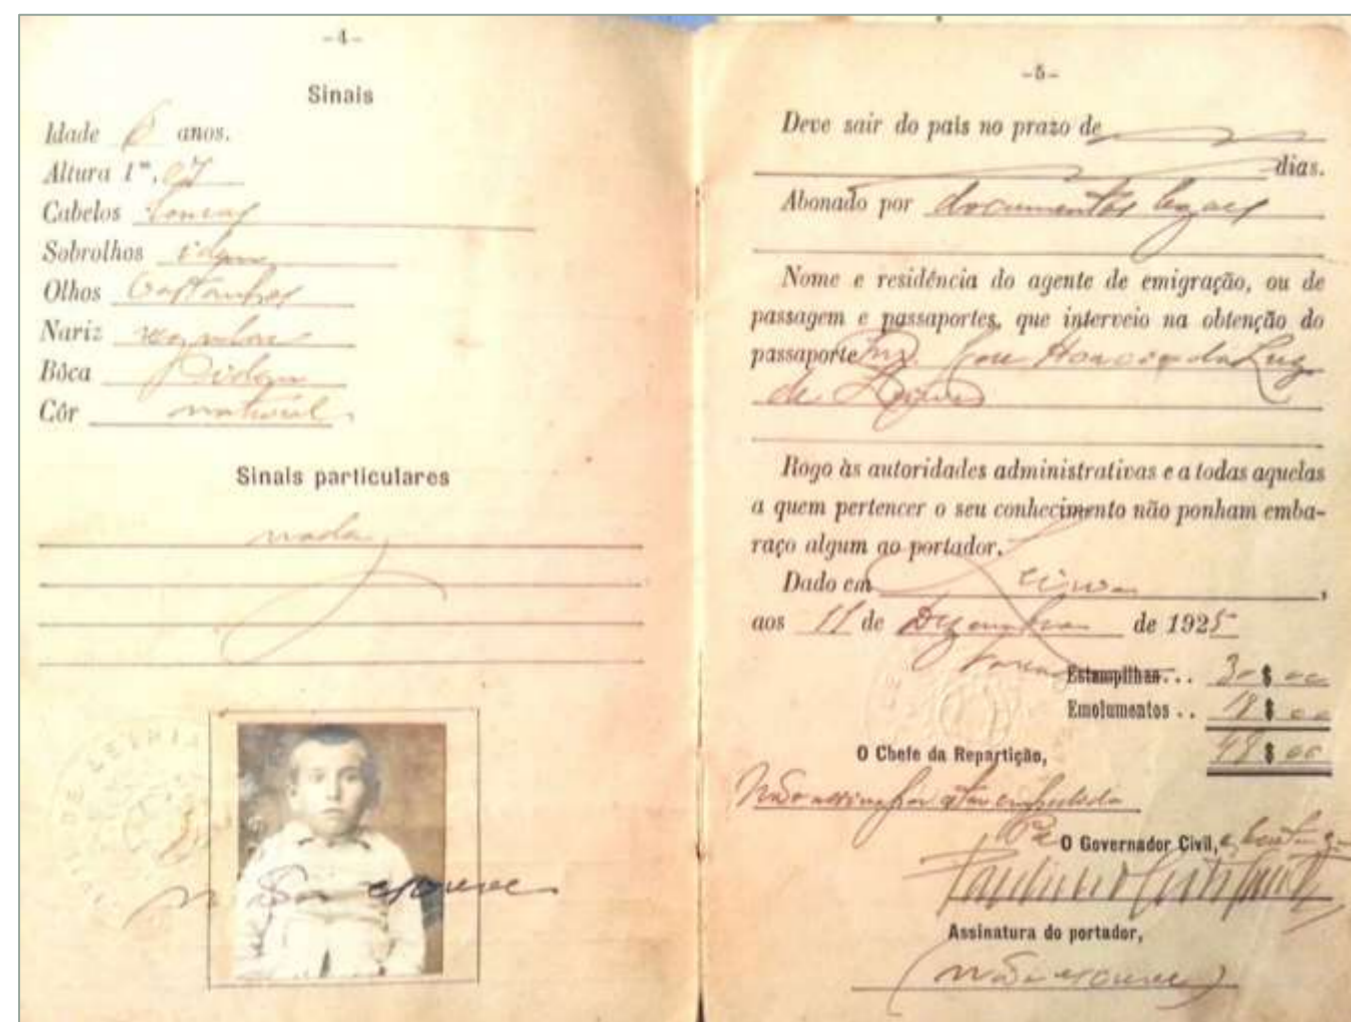 -4-
Sinais
Idade 6 anos.
Altura 1ᵐ,07
Cabelos louros
Sobrolhos idem
Olhos Castanhos
Nariz regular
Bôca idem
Côr natural
Sinais particulares
nada
não escreve
-5-
Deve sair do país no prazo de
dias.
Abonado por documentos legaes
Nome e residência do agente de emigração, ou de
passagem e passaportes, que interveio na obtenção do
passaporte José da Luz
de Leiria
Rogo às autoridades administrativas e a todas aquelas
a quem pertencer o seu conhecimento não ponham emba-
raço algum ao portador.
Dado em Leiria,
aos 11 de Dezembro de 1925
Estampilhas... 30$00
Emolumentos.. 18$00
48$00
O Chefe da Repartição,
Não assina por estar impedido
O Governador Civil,
Assinatura do portador,
(não escreve)